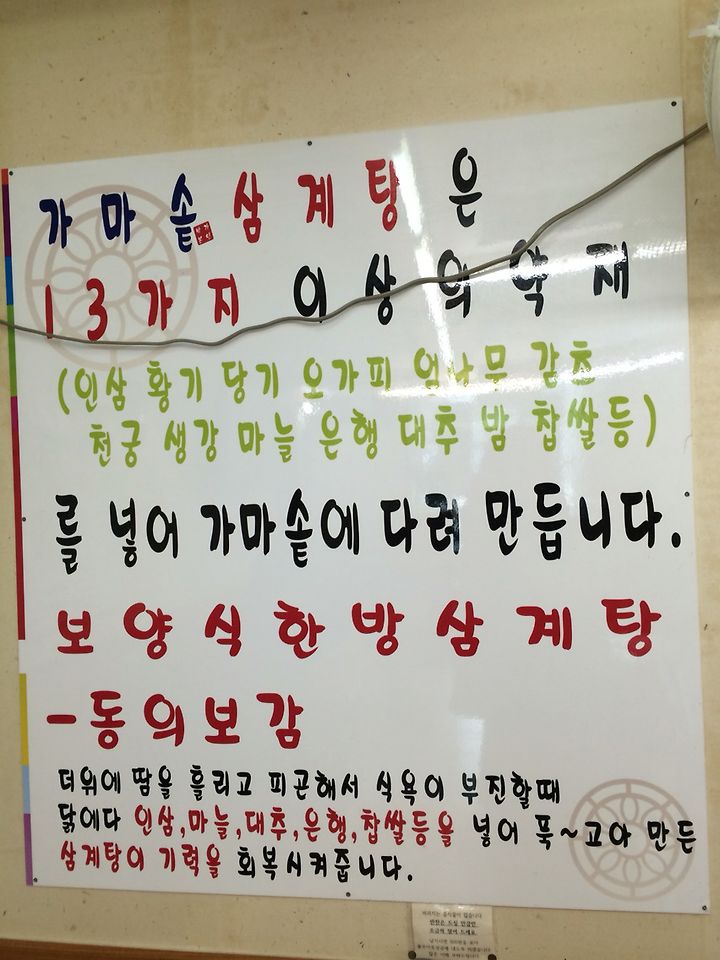 가마솥 삼계탕은
13가지 이상의 약재
(인삼 황기 당기 오가피 엄나무 감초
천궁 생강 마늘 은행 대추 밤 찹쌀등)
를 넣어 가마솥에 다려 만듭니다.
보양식한방삼계탕
-동의보감
더위에 땀을 흘리고 피곤해서 식욕이 부진할때
닭에다 인삼,마늘,대추,은행,찹쌀등을 넣어 푹~고아 만든
삼계탕이 기력을 회복시켜줍니다.